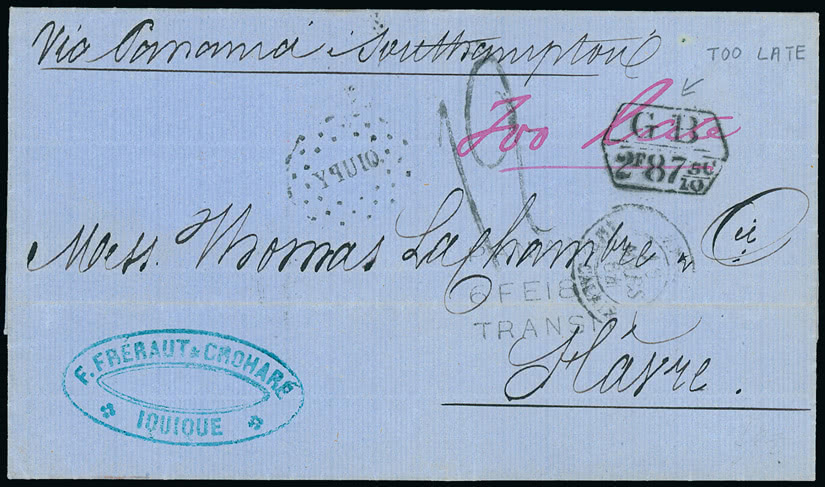 Via Panama & Southampton
TOO LATE
Too late
GB
2F87 5c/10
YPUIQ
Mess. Thomas Lachambre & Cie
6 FE18
TRANSI
Hâvre.
F. FRÉRAUT & CHOHARÉ
IQUIQUE